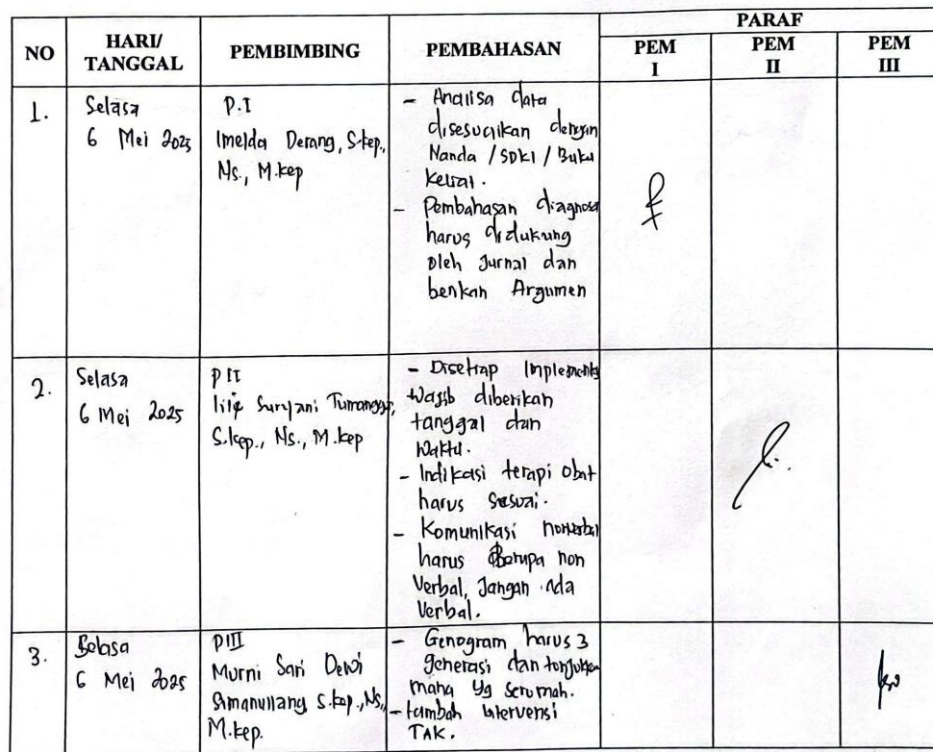 NO
HARI/
TANGGAL
PEMBIMBING
PEMBAHASAN
PARAF
PEM
I
PEM
II
PEM
III
1.
Selasa
6 Mei 2025
P.I
Imelda Derang, S.kep.,
Ns., M.kep
- Analisa data
disesuaikan dengan
Nanda / SDKI / Buku
- Pembahasan diagnosa
harus didukung
oleh Jurnal dan
berikan Argumen
2.
Selasa
6 Mei 2025
PII
Lilis Suryani Tumanggor,
S.kep., Ns., M.kep
- Disetiap Implementasi
wajib diberikan
tanggal dan
waktu.
- Indikasi terapi obat
harus sesuai.
- Komunikasi nonverbal
harus berupa non
verbal, Jangan ada
Verbal.
3.
Selasa
6 Mei 2025
PIII
Murni Sari Dewi
Simanullang S.kep., Ns.,
M.kep.
- Genogram harus 3
generasi dan tunjukkan
mana yg serumah.
- tambah intervensi
TAK.